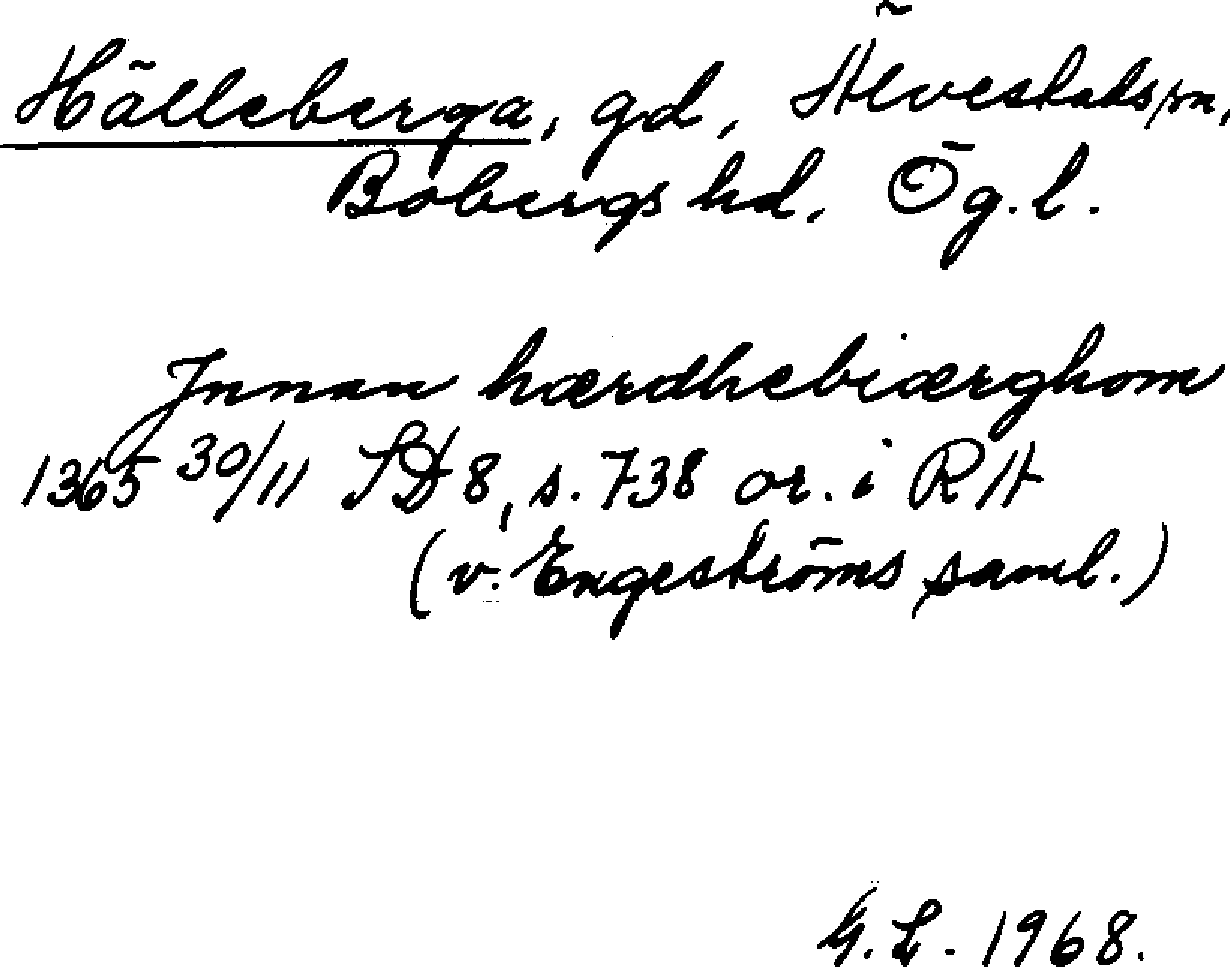 Hälleberga, gd, Älvestadsn,
Bobergs hd, Ög.l.
Jnnan hærdhebiærghom
1365 30/11 SD 8, s. 738 or. i RA
(v. Engeströms saml.)
G. L. 1968.